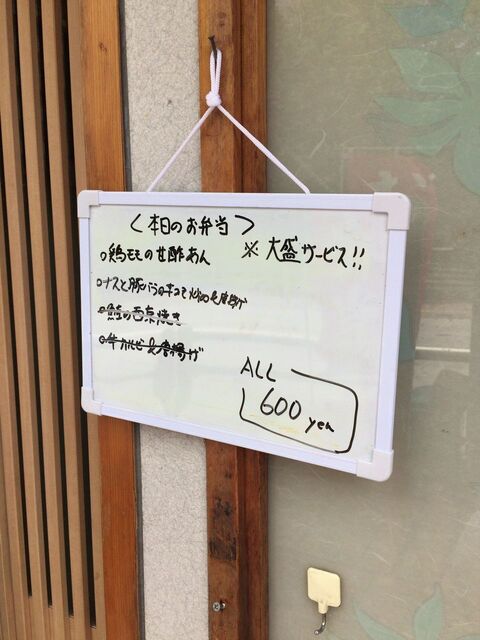 〈本日のお弁当〉
※大盛サービス!!
○鶏モモの甘酢あん
○ナスと豚バラのキムチ炒め&唐揚げ
○鮭の西京焼き
○牛カルビ&唐揚げ
ALL
600 yen